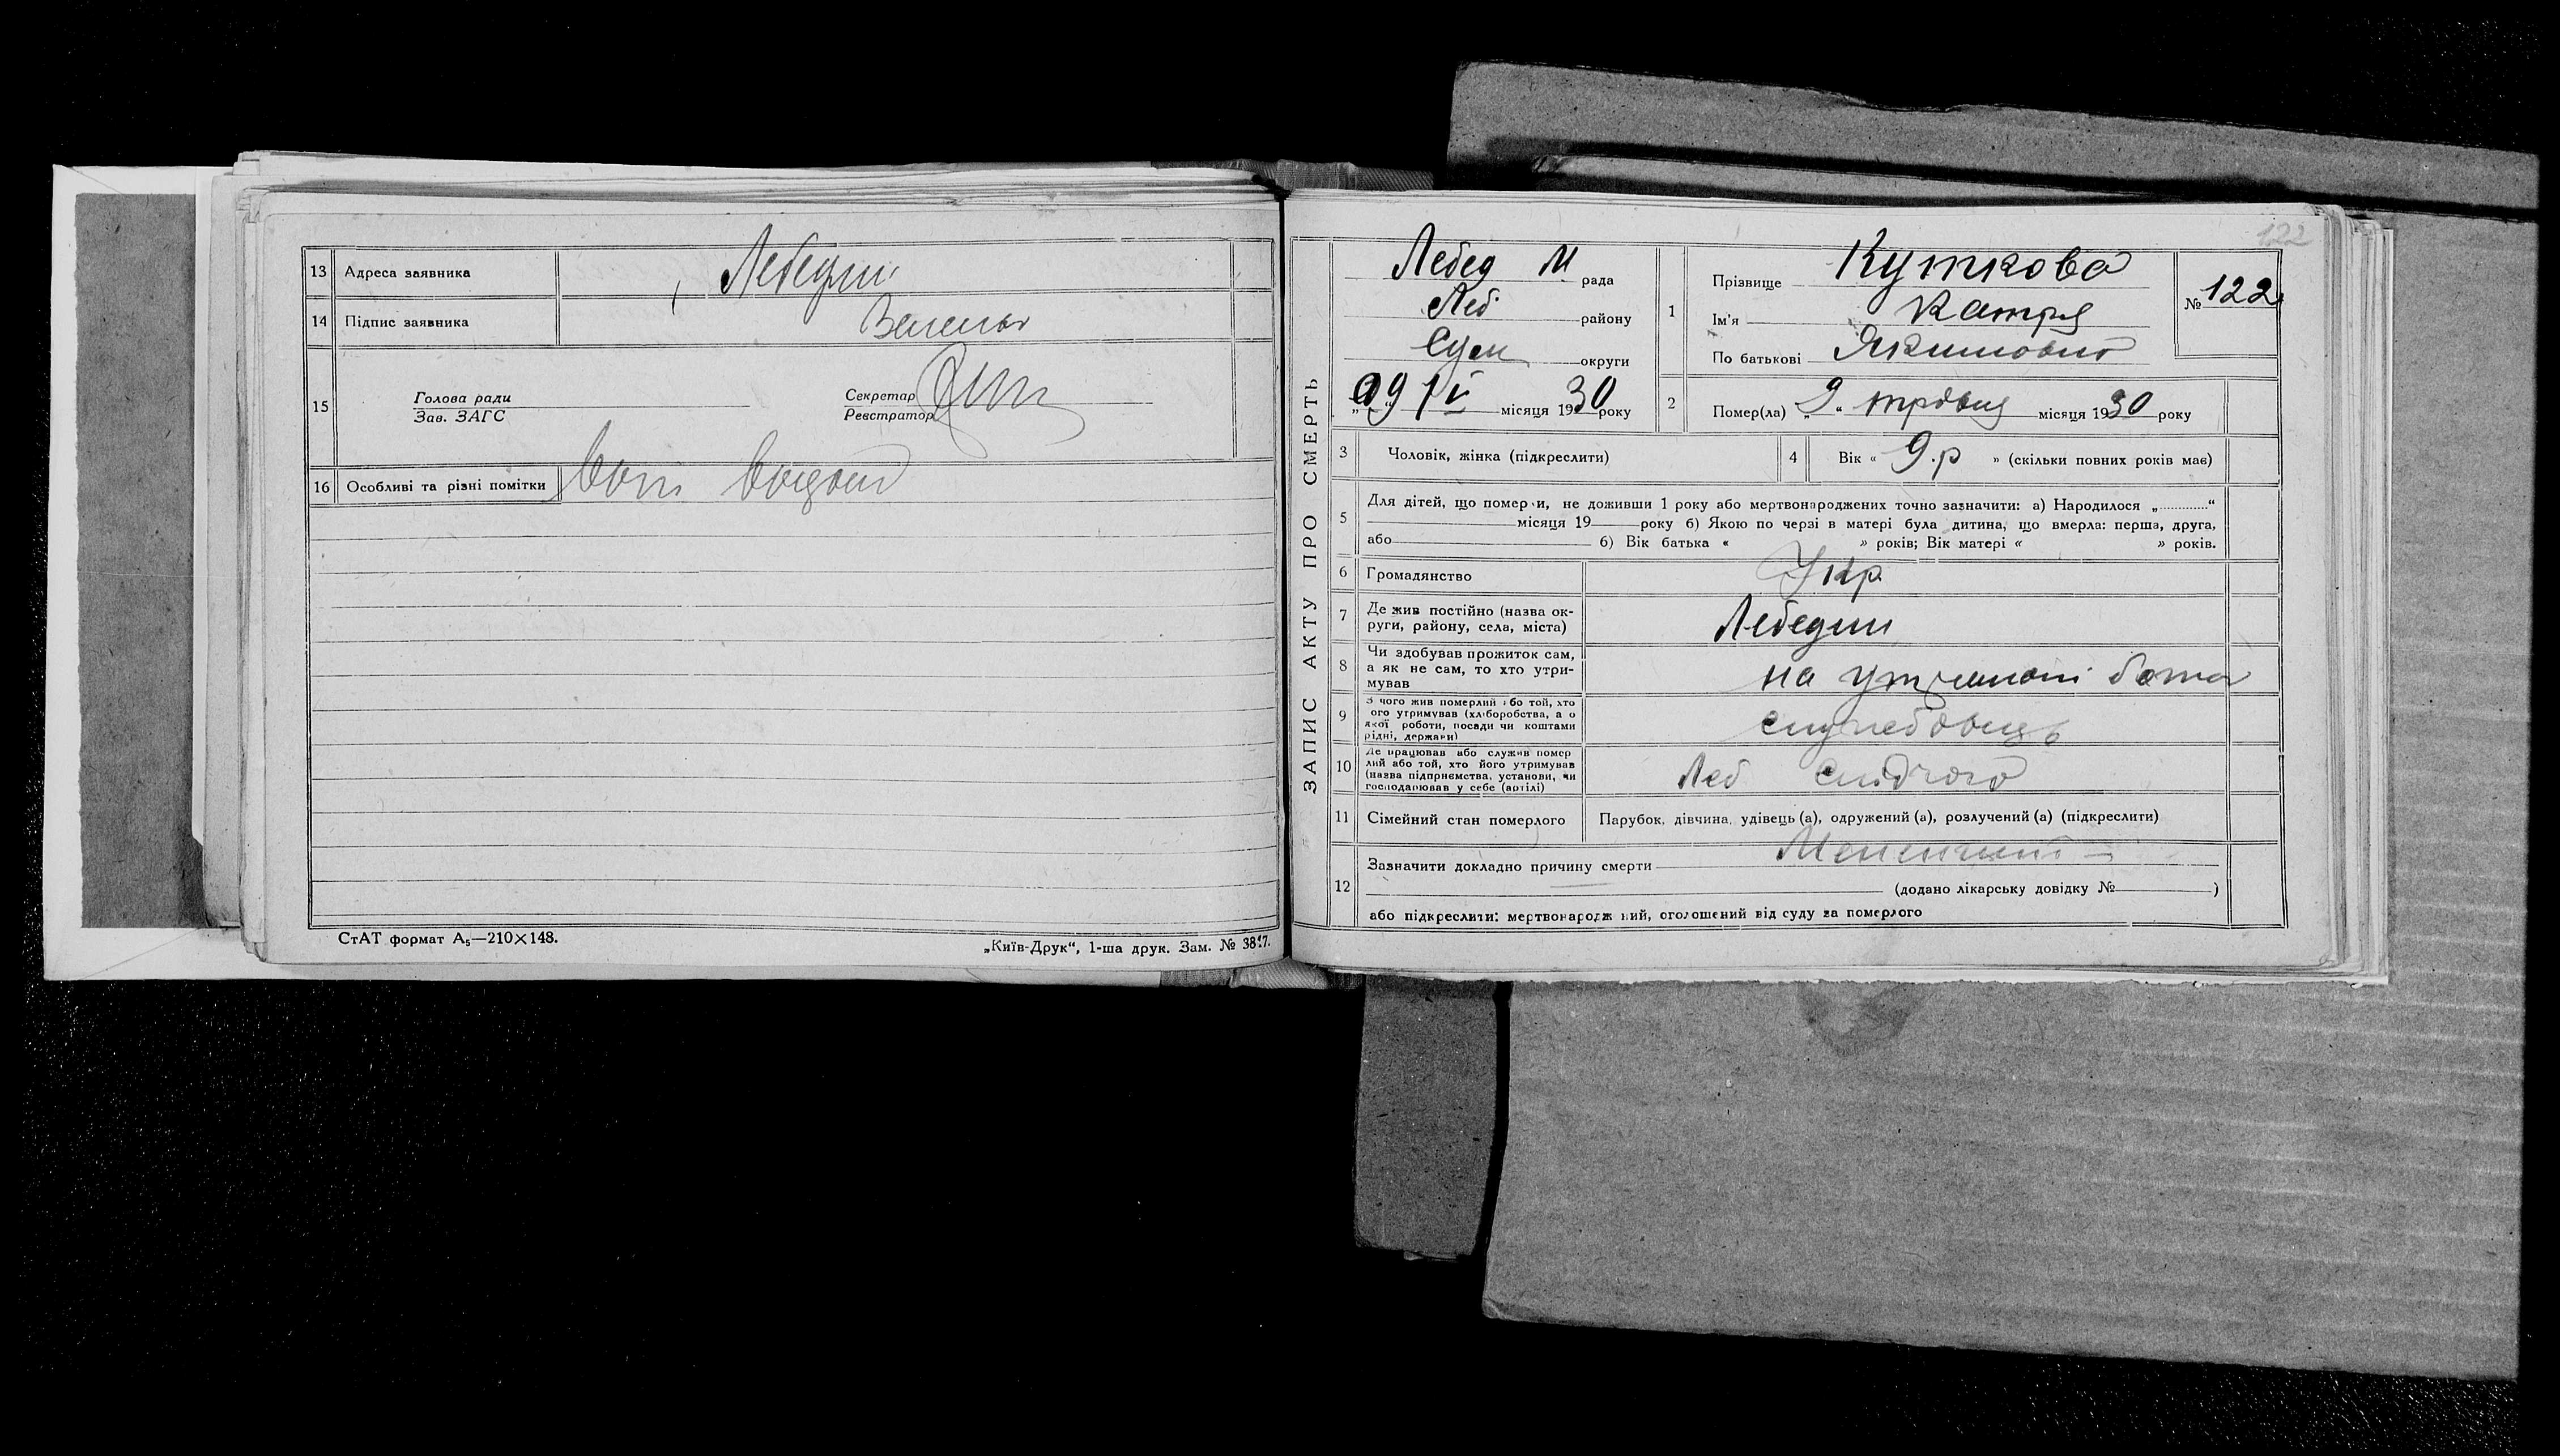 13 Адреса заявника Лебедин
14 Підпис заявника
15 Голова ради
Зав. ЗАГС
Секретар
Реєстратор
16 Особливі та різні помітки
СтАТ формат А₅—210×148.
„Київ-Друк“, 1-ша друк. Зам. № 38
122
ЗАПИС АКТУ ПРО СМЕРТЬ
Лебед М рада
Леб. району
Сум округи
місяця 1930 року
1 Прізвище Куткова
Ім'я Катря
По батькові Якимовна
№ 122
2 Помер(ла) „9“ травня місяця 1930 року
3 Чоловік, жінка (підкреслити)
4 Вік « 9.р » (скільки повних років має)
5 Для дітей, що померли, не доживши 1 року або мертвонароджених точно зазначити: а) Народилося „............“
місяця 19 року б) Якою по черзі в матері була дитина, що вмерла: перша, друга,
або б) Вік батька « » років; Вік матері « » років.
6 Громадянство Укр
7 Де жив постійно (назва ок-
руги, району, села, міста) Лебедин
8 Чи здобував прожиток сам,
а як не сам, то хто утри-
мував на утриманні батька
9 З чого жив померлий або той, хто
ого утримував (хліборобства, а о
якої роботи, посади чи коштами
рідні, держави)
службовець
10 Де працював або служив помер
лий або той, хто його утримував
(назва підприємства, установи, чи
господарював у себе (артілі)
Леб
11 Сімейний стан померлого Парубок, дівчина, удівець (а), одружений (а), розлучений (а) (підкреслити)
12 Зазначити докладно причину смерти Менингит
(додано лікарську довідку № )
або підкреслити: мертвонародж ний, оголошений від суду за померлого